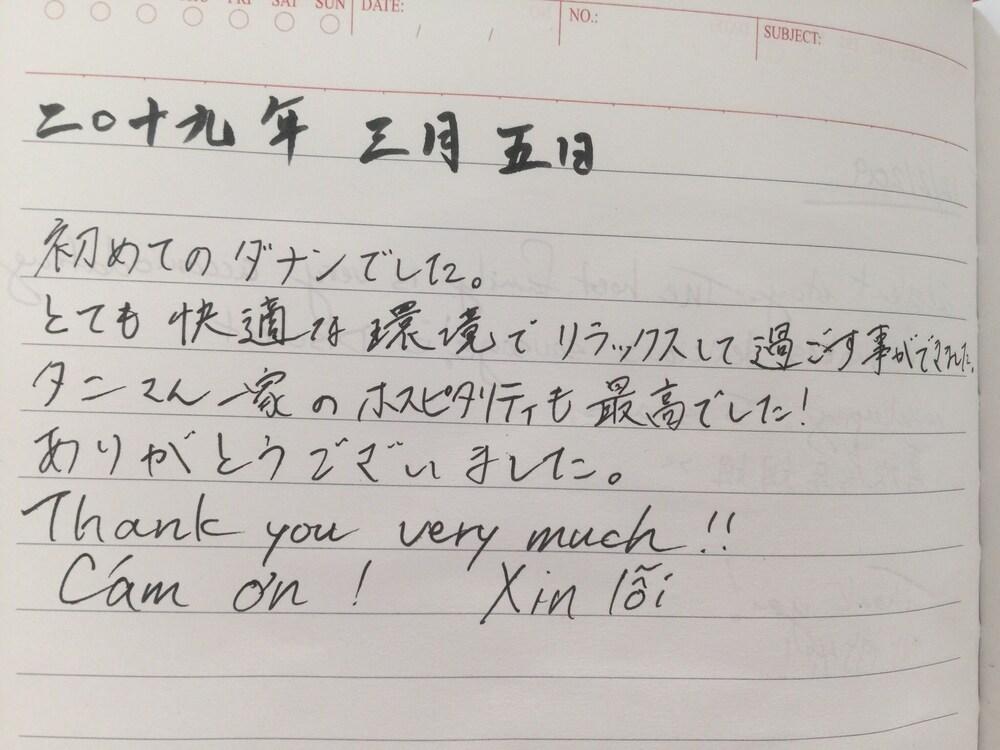 FRI SAT SUN DATE: / / NO.: SUBJECT:
二〇十九年 三月 五日
初めてのダナンでした。
とても快適な環境でリラックスして過ごす事ができました。
タンさん一家のホスピタリティも最高でした!
ありがとうございました。
Thank you very much!!
Cám ơn! Xin lỗi